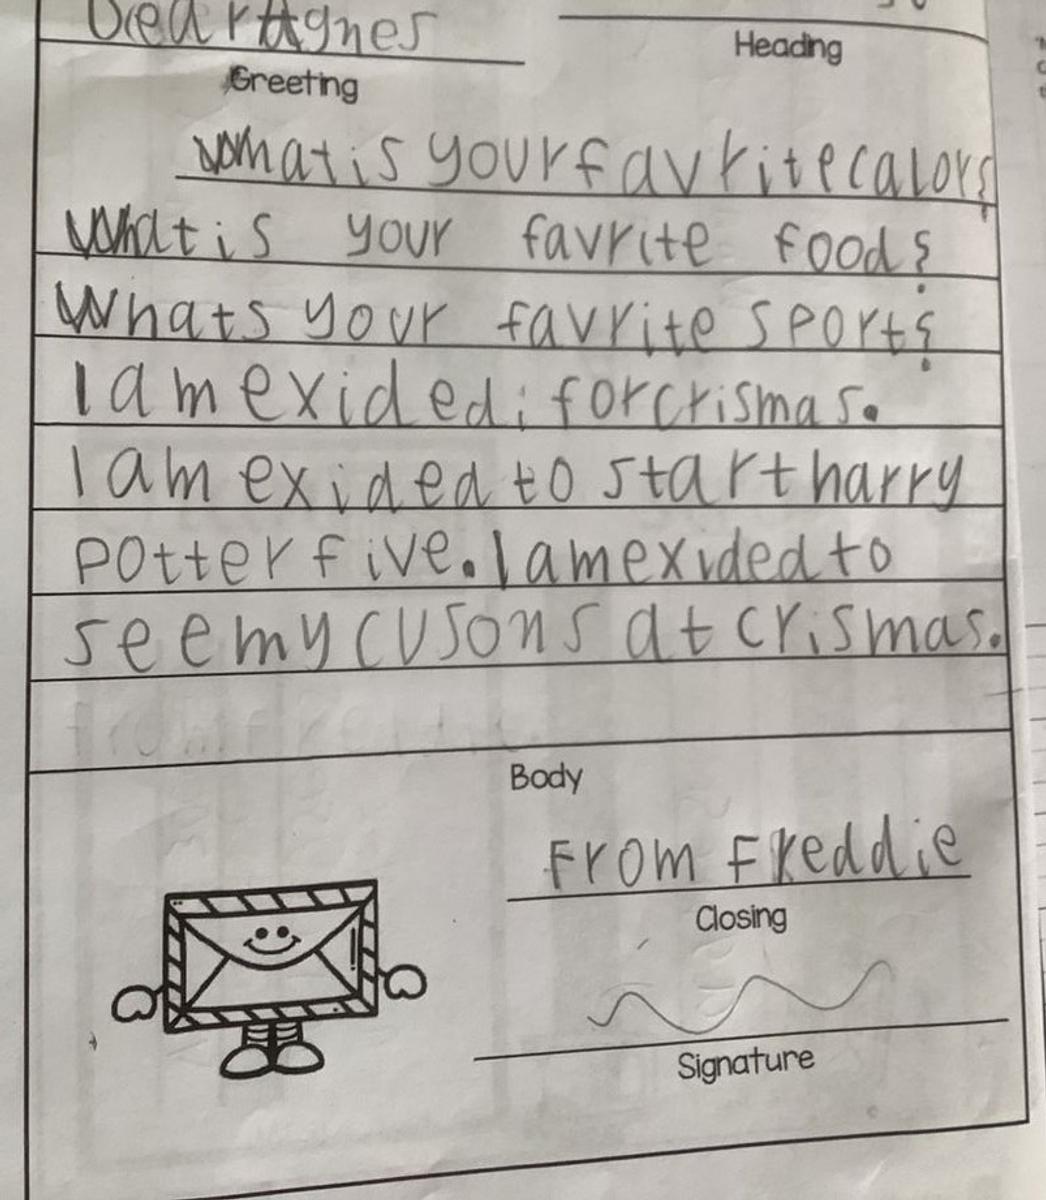 Dear Agnes
Heading
Greeting
What is your favrite calors?
What is your favrite food?
Whats your favrite sport?
I am exided for crismas.
I am exided to start harry
potter five. I am exided to
see my cusons at crismas.
Body
From Freddie
Closing
Signature